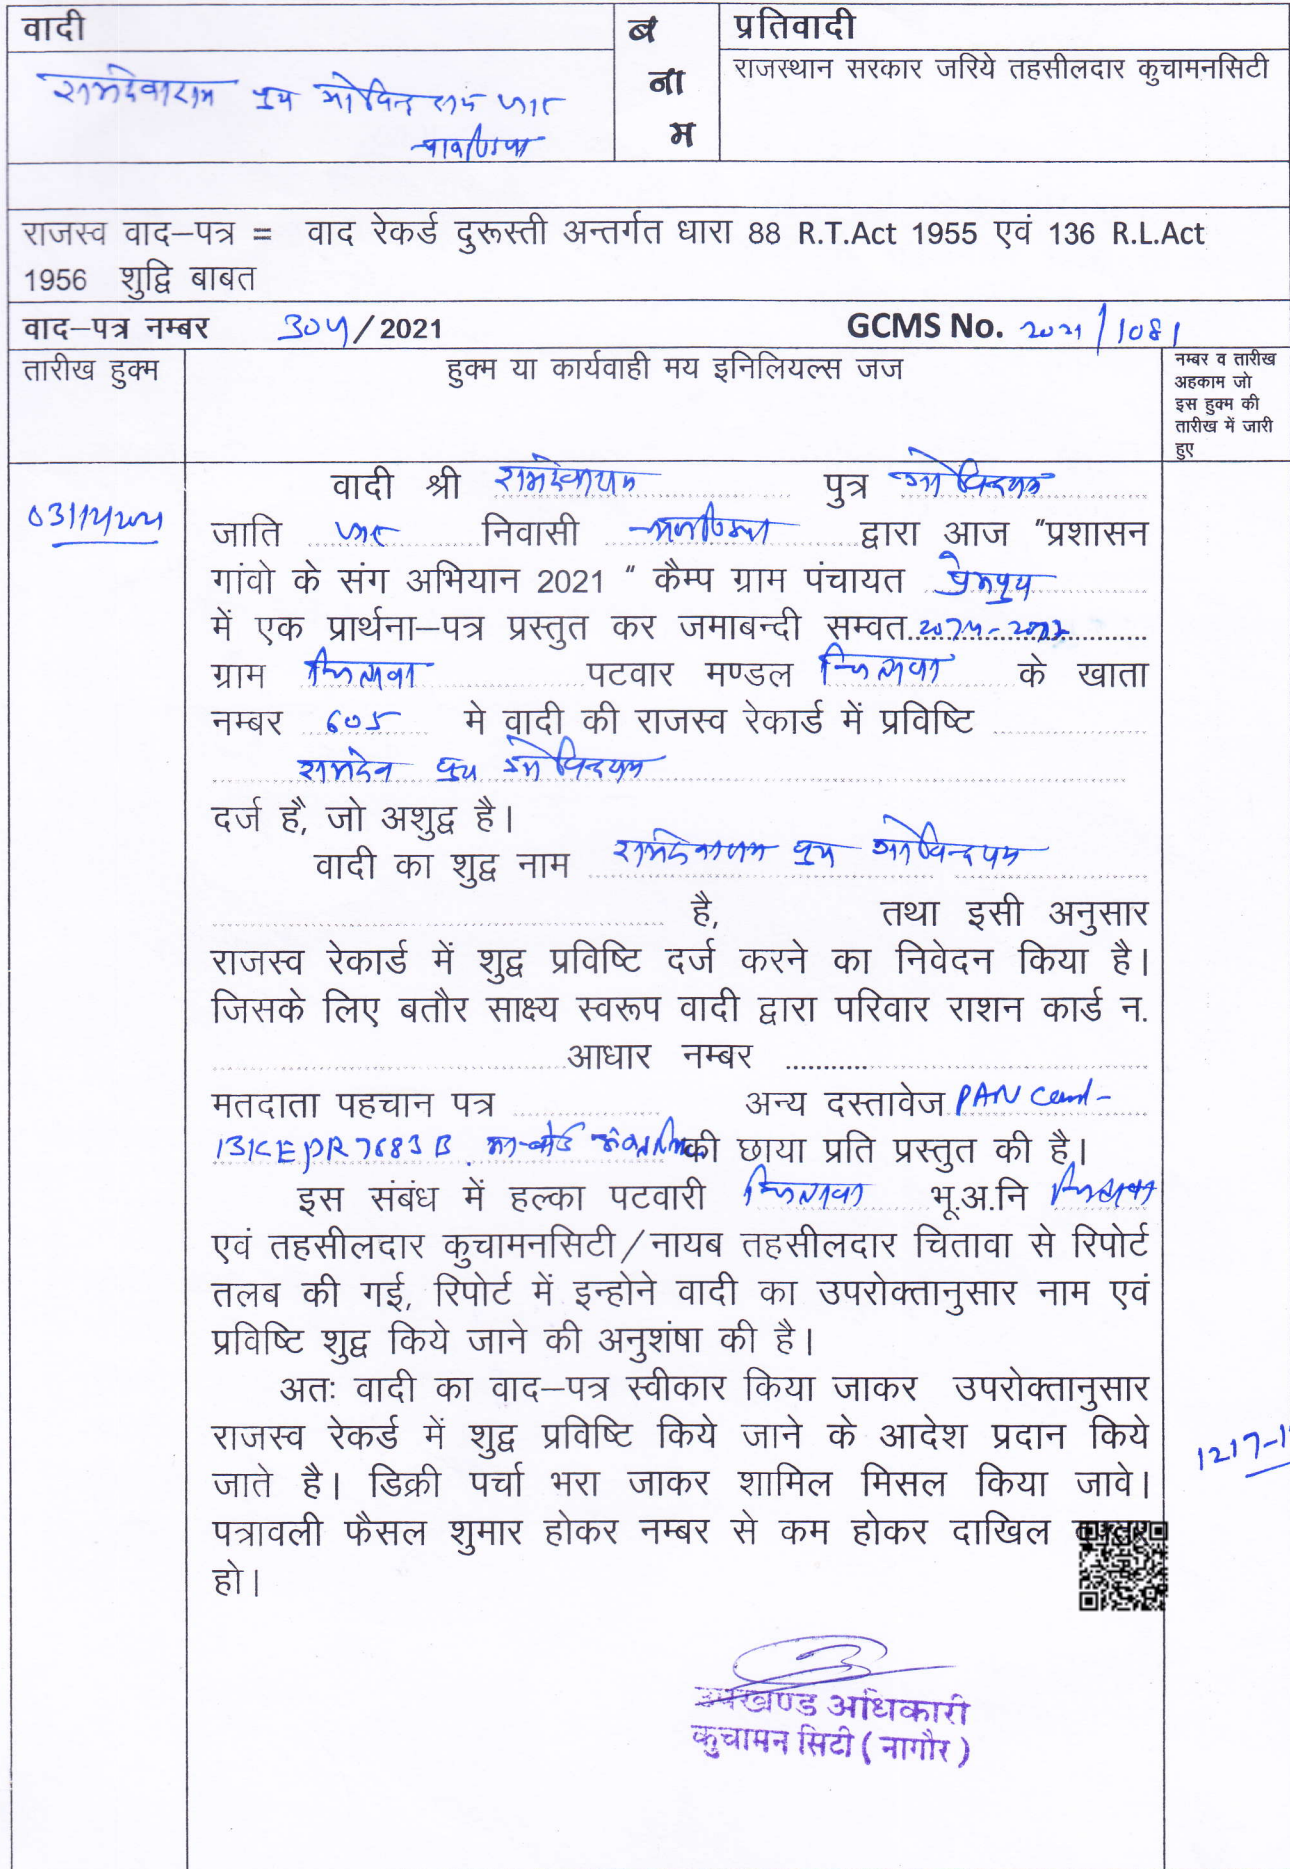 वादी
ब
ना
म
प्रतिवादी
रामदेवाराम पुत्र गोविन्द राम जाट
राजस्थान सरकार जरिये तहसीलदार कुचामनसिटी
राजस्व वाद–पत्र = वाद रेकर्ड दुरूस्ती अन्तर्गत धारा 88 R.T.Act 1955 एवं 136 R.L.Act
1956 शुद्वि बाबत
वाद–पत्र नम्बर 304/2021 GCMS No. 2021/1081
तारीख हुक्म
हुक्म या कार्यवाही मय इनिलियल्स जज
नम्बर व तारीख
अहकाम जो
इस हुक्म की
तारीख में जारी
हुए
03/12/2021
वादी श्री रामदेवाराम पुत्र गोविन्दराम
जाति जाट निवासी द्वारा आज "प्रशासन
गांवो के संग अभियान 2021 " कैम्प ग्राम पंचायत प्रेमपुरा
में एक प्रार्थना–पत्र प्रस्तुत कर जमाबन्दी सम्वत
ग्राम पटवार मण्डल के खाता
नम्बर 605 मे वादी की राजस्व रेकार्ड में प्रविष्टि
रामदेव पुत्र गोविन्दराम
दर्ज है, जो अशुद्व है।
वादी का शुद्व नाम रामदेवाराम पुत्र गोविन्दराम
है, तथा इसी अनुसार
राजस्व रेकार्ड में शुद्व प्रविष्टि दर्ज करने का निवेदन किया है।
जिसके लिए बतौर साक्ष्य स्वरूप वादी द्वारा परिवार राशन कार्ड न.
आधार नम्बर
मतदाता पहचान पत्र अन्य दस्तावेज PAN Card-
की छाया प्रति प्रस्तुत की है।
इस संबंध में हल्का पटवारी भू.अ.नि
एवं तहसीलदार कुचामनसिटी/नायब तहसीलदार चितावा से रिपोर्ट
तलब की गई, रिपोर्ट में इन्होने वादी का उपरोक्तानुसार नाम एवं
प्रविष्टि शुद्व किये जाने की अनुशंषा की है।
अतः वादी का वाद–पत्र स्वीकार किया जाकर उपरोक्तानुसार
राजस्व रेकर्ड में शुद्व प्रविष्टि किये जाने के आदेश प्रदान किये
जाते है। डिक्री पर्चा भरा जाकर शामिल मिसल किया जावे।
पत्रावली फैसल शुमार होकर नम्बर से कम होकर दाखिल
हो।
उपखण्ड अधिकारी
कुचामन सिटी ( नागौर )